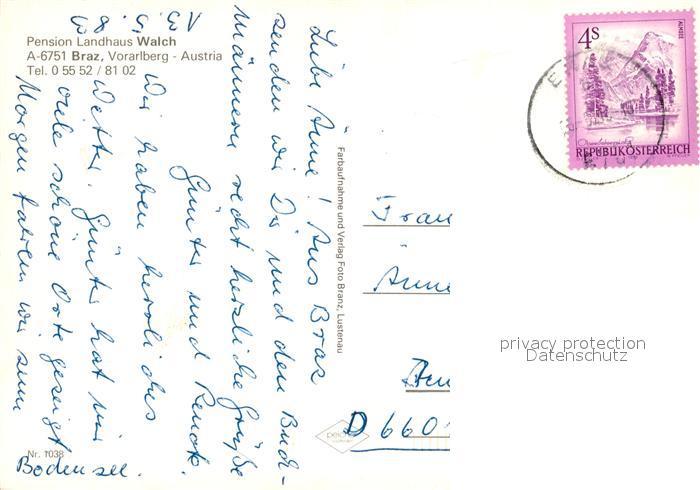 Pension Landhaus Walch
A-6751 Braz, Vorarlberg - Austria
Tel. 0 55 52 / 81 02
Liebe Änne! Aus Braz
senden wir Dir und den Budi-
männern recht herzliche Grüße
Günter und Renate.
Wir haben herrliches
Wetter. Günter hat mir
viele schöne Orte gezeigt
Morgen fahren wir zum
Bodensee.
Nr. 1038
Farbaufnahme und Verlag Foto Branz, Lustenau
4S
ALMSEE
REPUBLIK ÖSTERREICH
Frau
Änne
D 660
privacy protection
Datenschutz